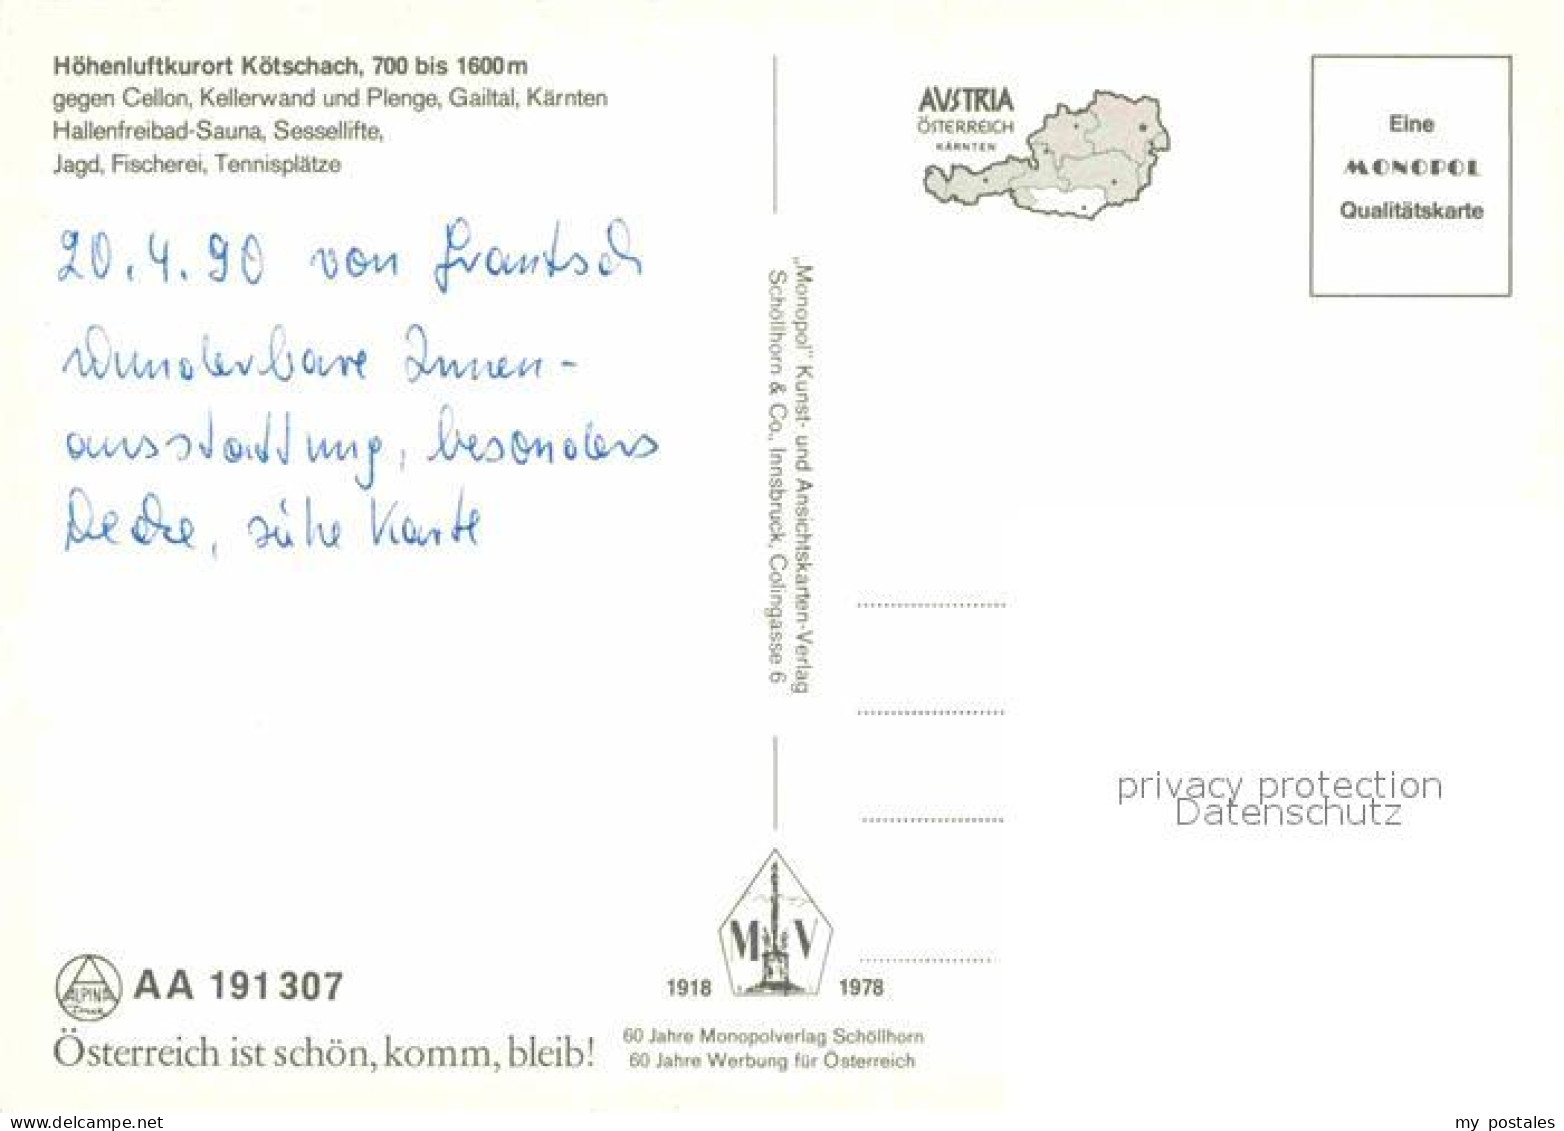 Höhenluftkurort Kötschach, 700 bis 1600m
gegen Cellon, Kellerwand und Plenge, Gailtal, Kärnten
Hallenfreibad-Sauna, Sessellifte,
Jagd, Fischerei, Tennisplätze
20.4.90 von
wunderbare Innen-
ausstattung, besonders
Decke, siehe Karte
"Monopol" Kunst- und Ansichtskarten-Verlag
Schöllhorn & Co., Innsbruck, Colingasse 6
AUSTRIA
ÖSTERREICH
KÄRNTEN
Eine
MONOPOL
Qualitätskarte
privacy protection
Datenschutz
M V
1918 1978
60 Jahre Monopolverlag Schöllhorn
60 Jahre Werbung für Österreich
ALPINA
AA 191307
Österreich ist schön, komm, bleib!
www.delcampe.net
my postales